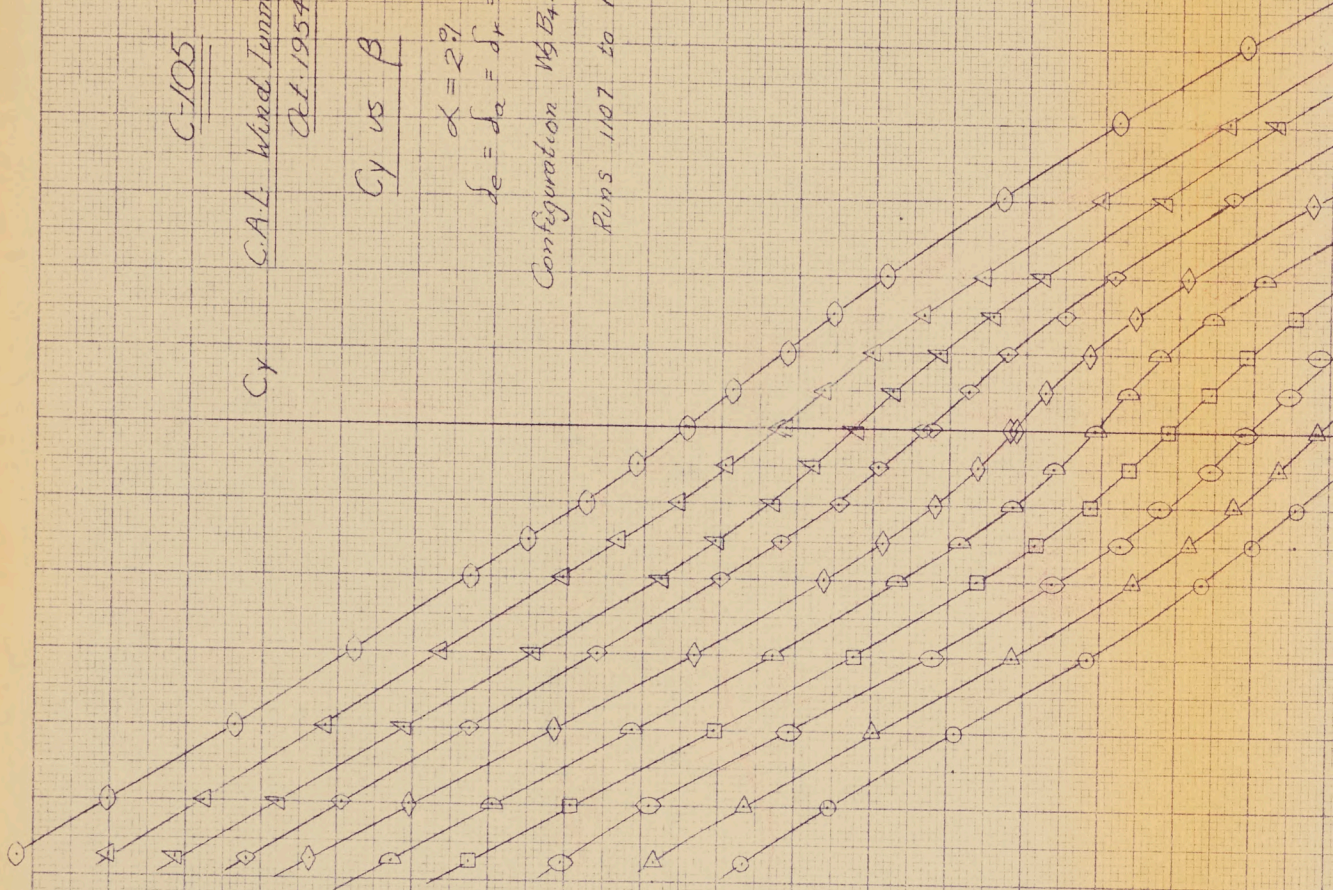 C-105
C.A.L. Wind Tunn
Oct. 1954
Cy vs β
α = 2°
δe = δa = δr =
Configuration W3B4
Runs 1107 to
Cy